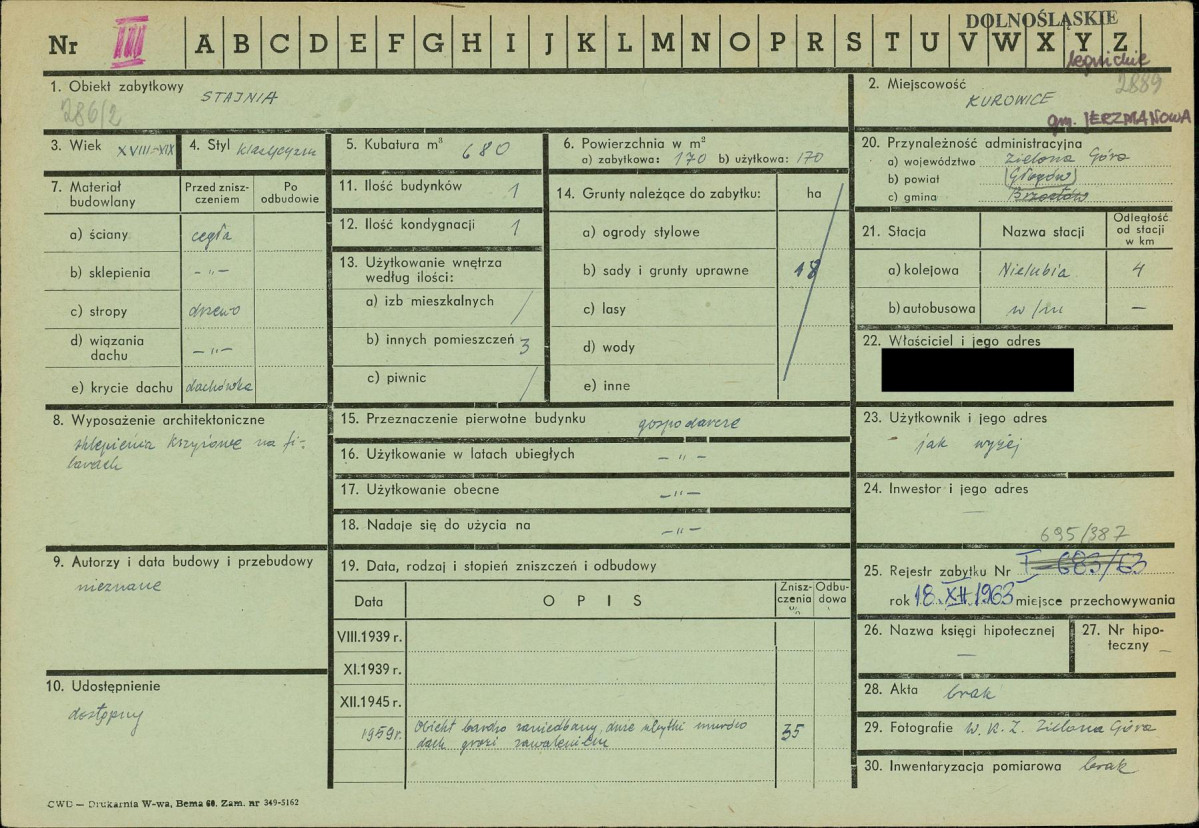 Nr III A B C D E F G H I J K L M N O P R S T U V W X Y Z
DOLNOŚLĄSKIE
legnickie
1. Obiekt zabytkowy STAJNIA
286/2
2. Miejscowość 2889
KUROWICE
gm. JERZMANOWA
3. Wiek XVIII-XIX
4. Styl klasycyzm
5. Kubatura m³ 680
6. Powierzchnia w m²
a) zabytkowa: 170 b) użytkowa: 170
20. Przynależność administracyjna
a) województwo Zielona Góra
b) powiat (Głogów)
c) gmina
7. Materiał budowlany
Przed zniszczeniem
Po odbudowie
a) ściany cegła
b) sklepienia -„-
c) stropy drzewo
d) wiązania dachu -„-
e) krycie dachu dachówka
11. Ilość budynków 1
12. Ilość kondygnacji 1
13. Użytkowanie wnętrza
według ilości:
a) izb mieszkalnych /
b) innych pomieszczeń 3
c) piwnic /
14. Grunty należące do zabytku: ha
a) ogrody stylowe
b) sady i grunty uprawne 18
c) lasy
d) wody
e) inne
21. Stacja Nazwa stacji Odległość od stacji w km
a) kolejowa Nielubia 4
b) autobusowa w/m —
22. Właściciel i jego adres
8. Wyposażenie architektoniczne
sklepienia krzyżowe na fi-
larach
15. Przeznaczenie pierwotne budynku gospodarcze
16. Użytkowanie w latach ubiegłych -„-
17. Użytkowanie obecne -„-
18. Nadaje się do użycia na -„-
23. Użytkownik i jego adres
jak wyżej
24. Inwestor i jego adres
—
695/387
9. Autorzy i data budowy i przebudowy
nieznane
19. Data, rodzaj i stopień zniszczeń i odbudowy
Data OPIS Zniszczenia % Odbudowa
VIII.1939 r.
XI.1939 r.
XII.1945 r.
1959 r. Obiekt bardzo zaniedbany, duże ubytki murów
dach grozi zawaleniem 35
25. Rejestr zabytku Nr I 683/63
rok 18.XII.1963 miejsce przechowywania
26. Nazwa księgi hipotecznej
—
27. Nr hipoteczny —
10. Udostępnienie
dostępny
28. Akta brak
29. Fotografie W.K.Z. Zielona Góra
30. Inwentaryzacja pomiarowa brak
CWD — Drukarnia W-wa, Bema 60. Zam. nr 349-5162